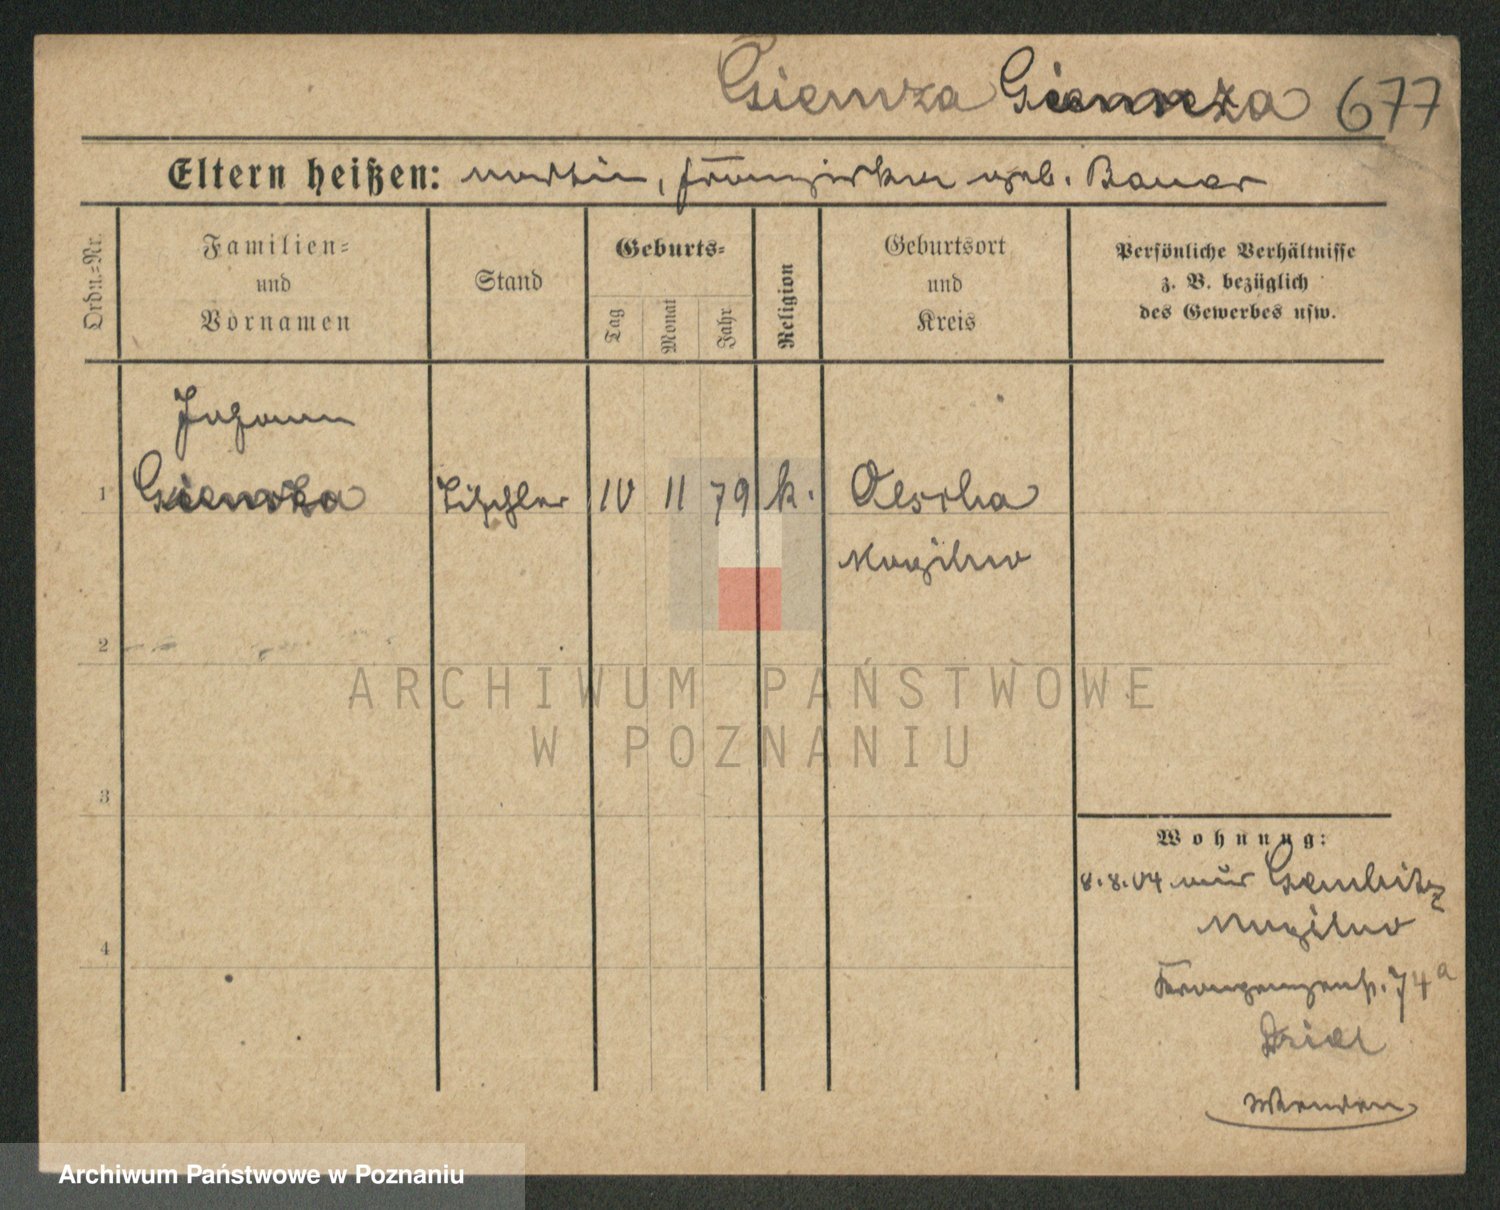 Giemza Giemza 677
Eltern heißen: Martin, Franziska geb. Bauer
Ordn.-Nr.
Familien- und Vornamen
Stand
Geburts-
Tag
Monat
Jahr
Religion
Geburtsort und Kreis
Persönliche Verhältnisse z. B. bezüglich des Gewerbes usw.
Johann
1 Giemza Tischler 10 11 79 k.
Mogilno
2
3
4
Wohnung:
8.8.04 nur Gembitz
Mogilno
Kronprinzenstr. 74a
Wenden
ARCHIWUM PAŃSTWOWE
W POZNANIU
Archiwum Państwowe w Poznaniu